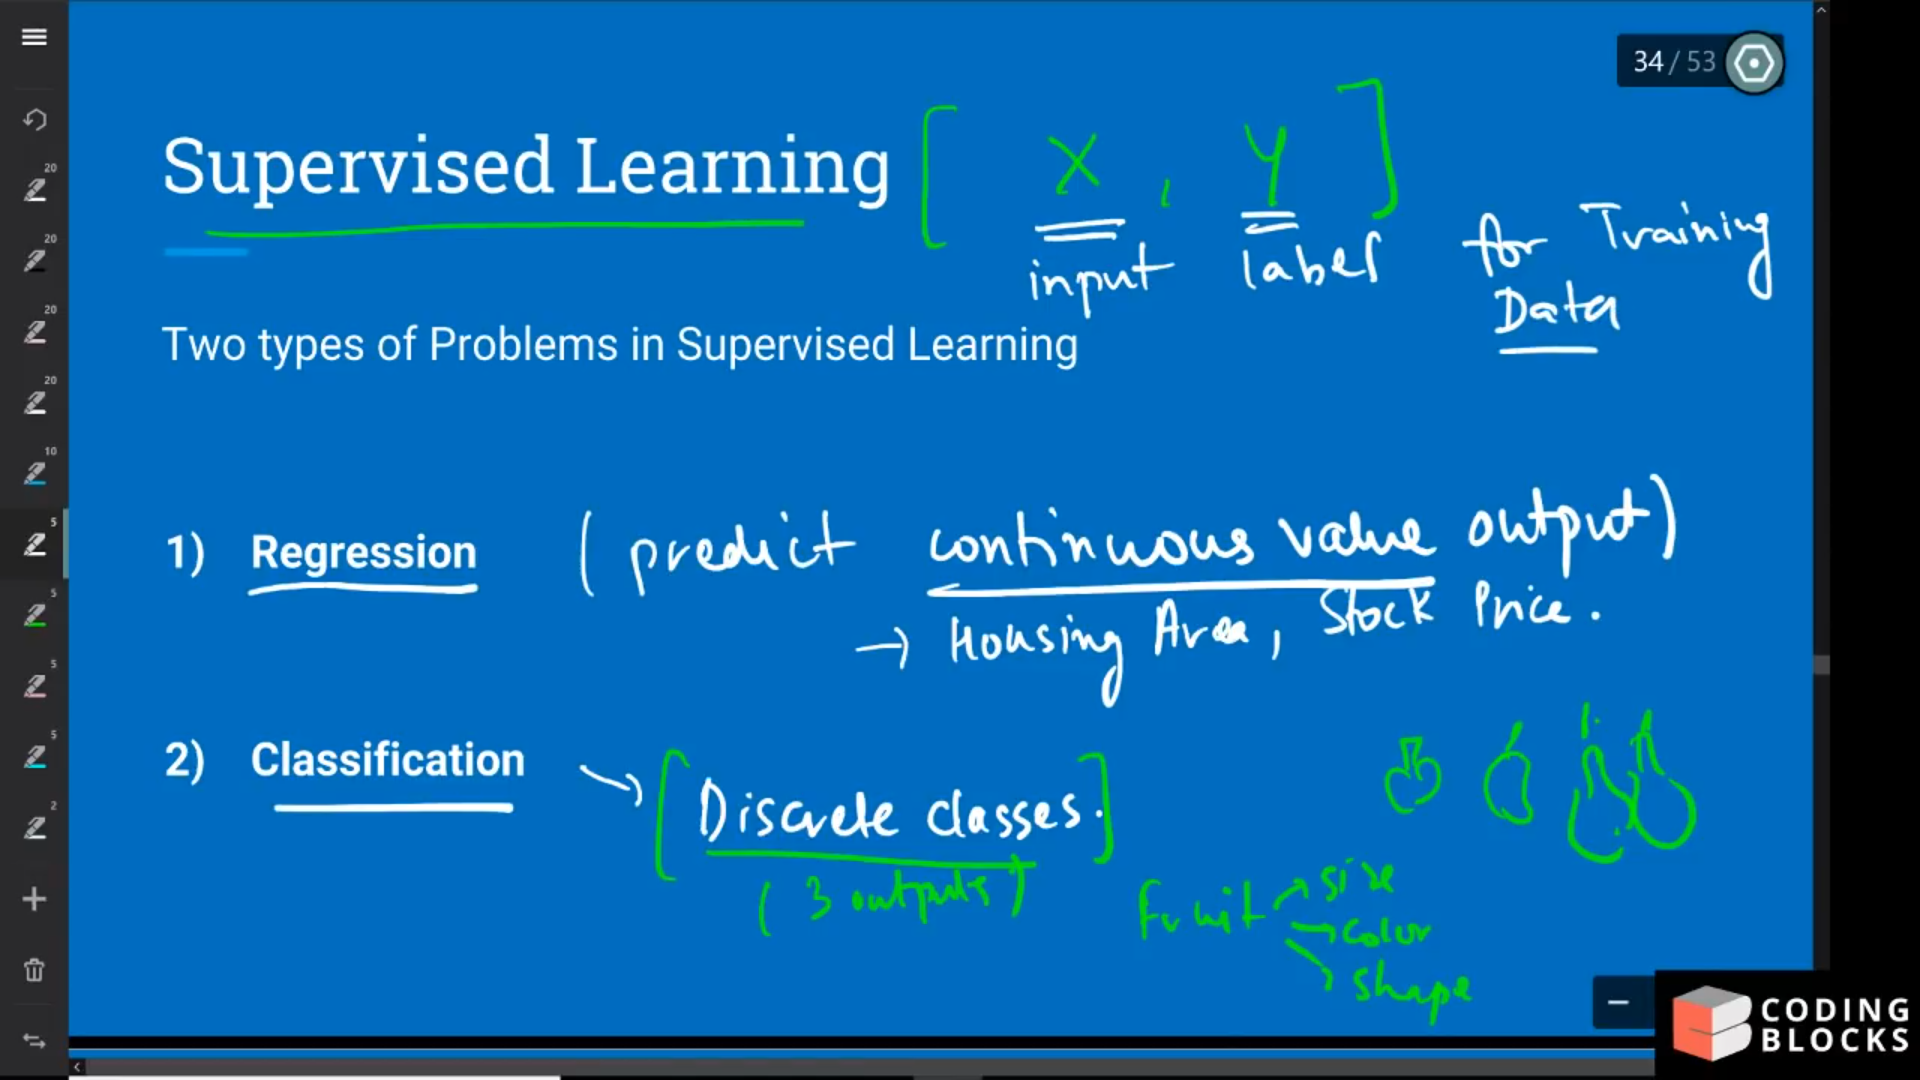 34 / 53
Supervised Learning [ X , Y ]
input label for Training
Data
Two types of Problems in Supervised Learning
1) Regression (predict continuous value output)
→ Housing Area, Stock Price.
2) Classification → [Discrete classes.]
(3 outputs)
Fruit → size
→ color
→ shape
20
20
20
20
10
5
5
5
5
2
CODING
BLOCKS